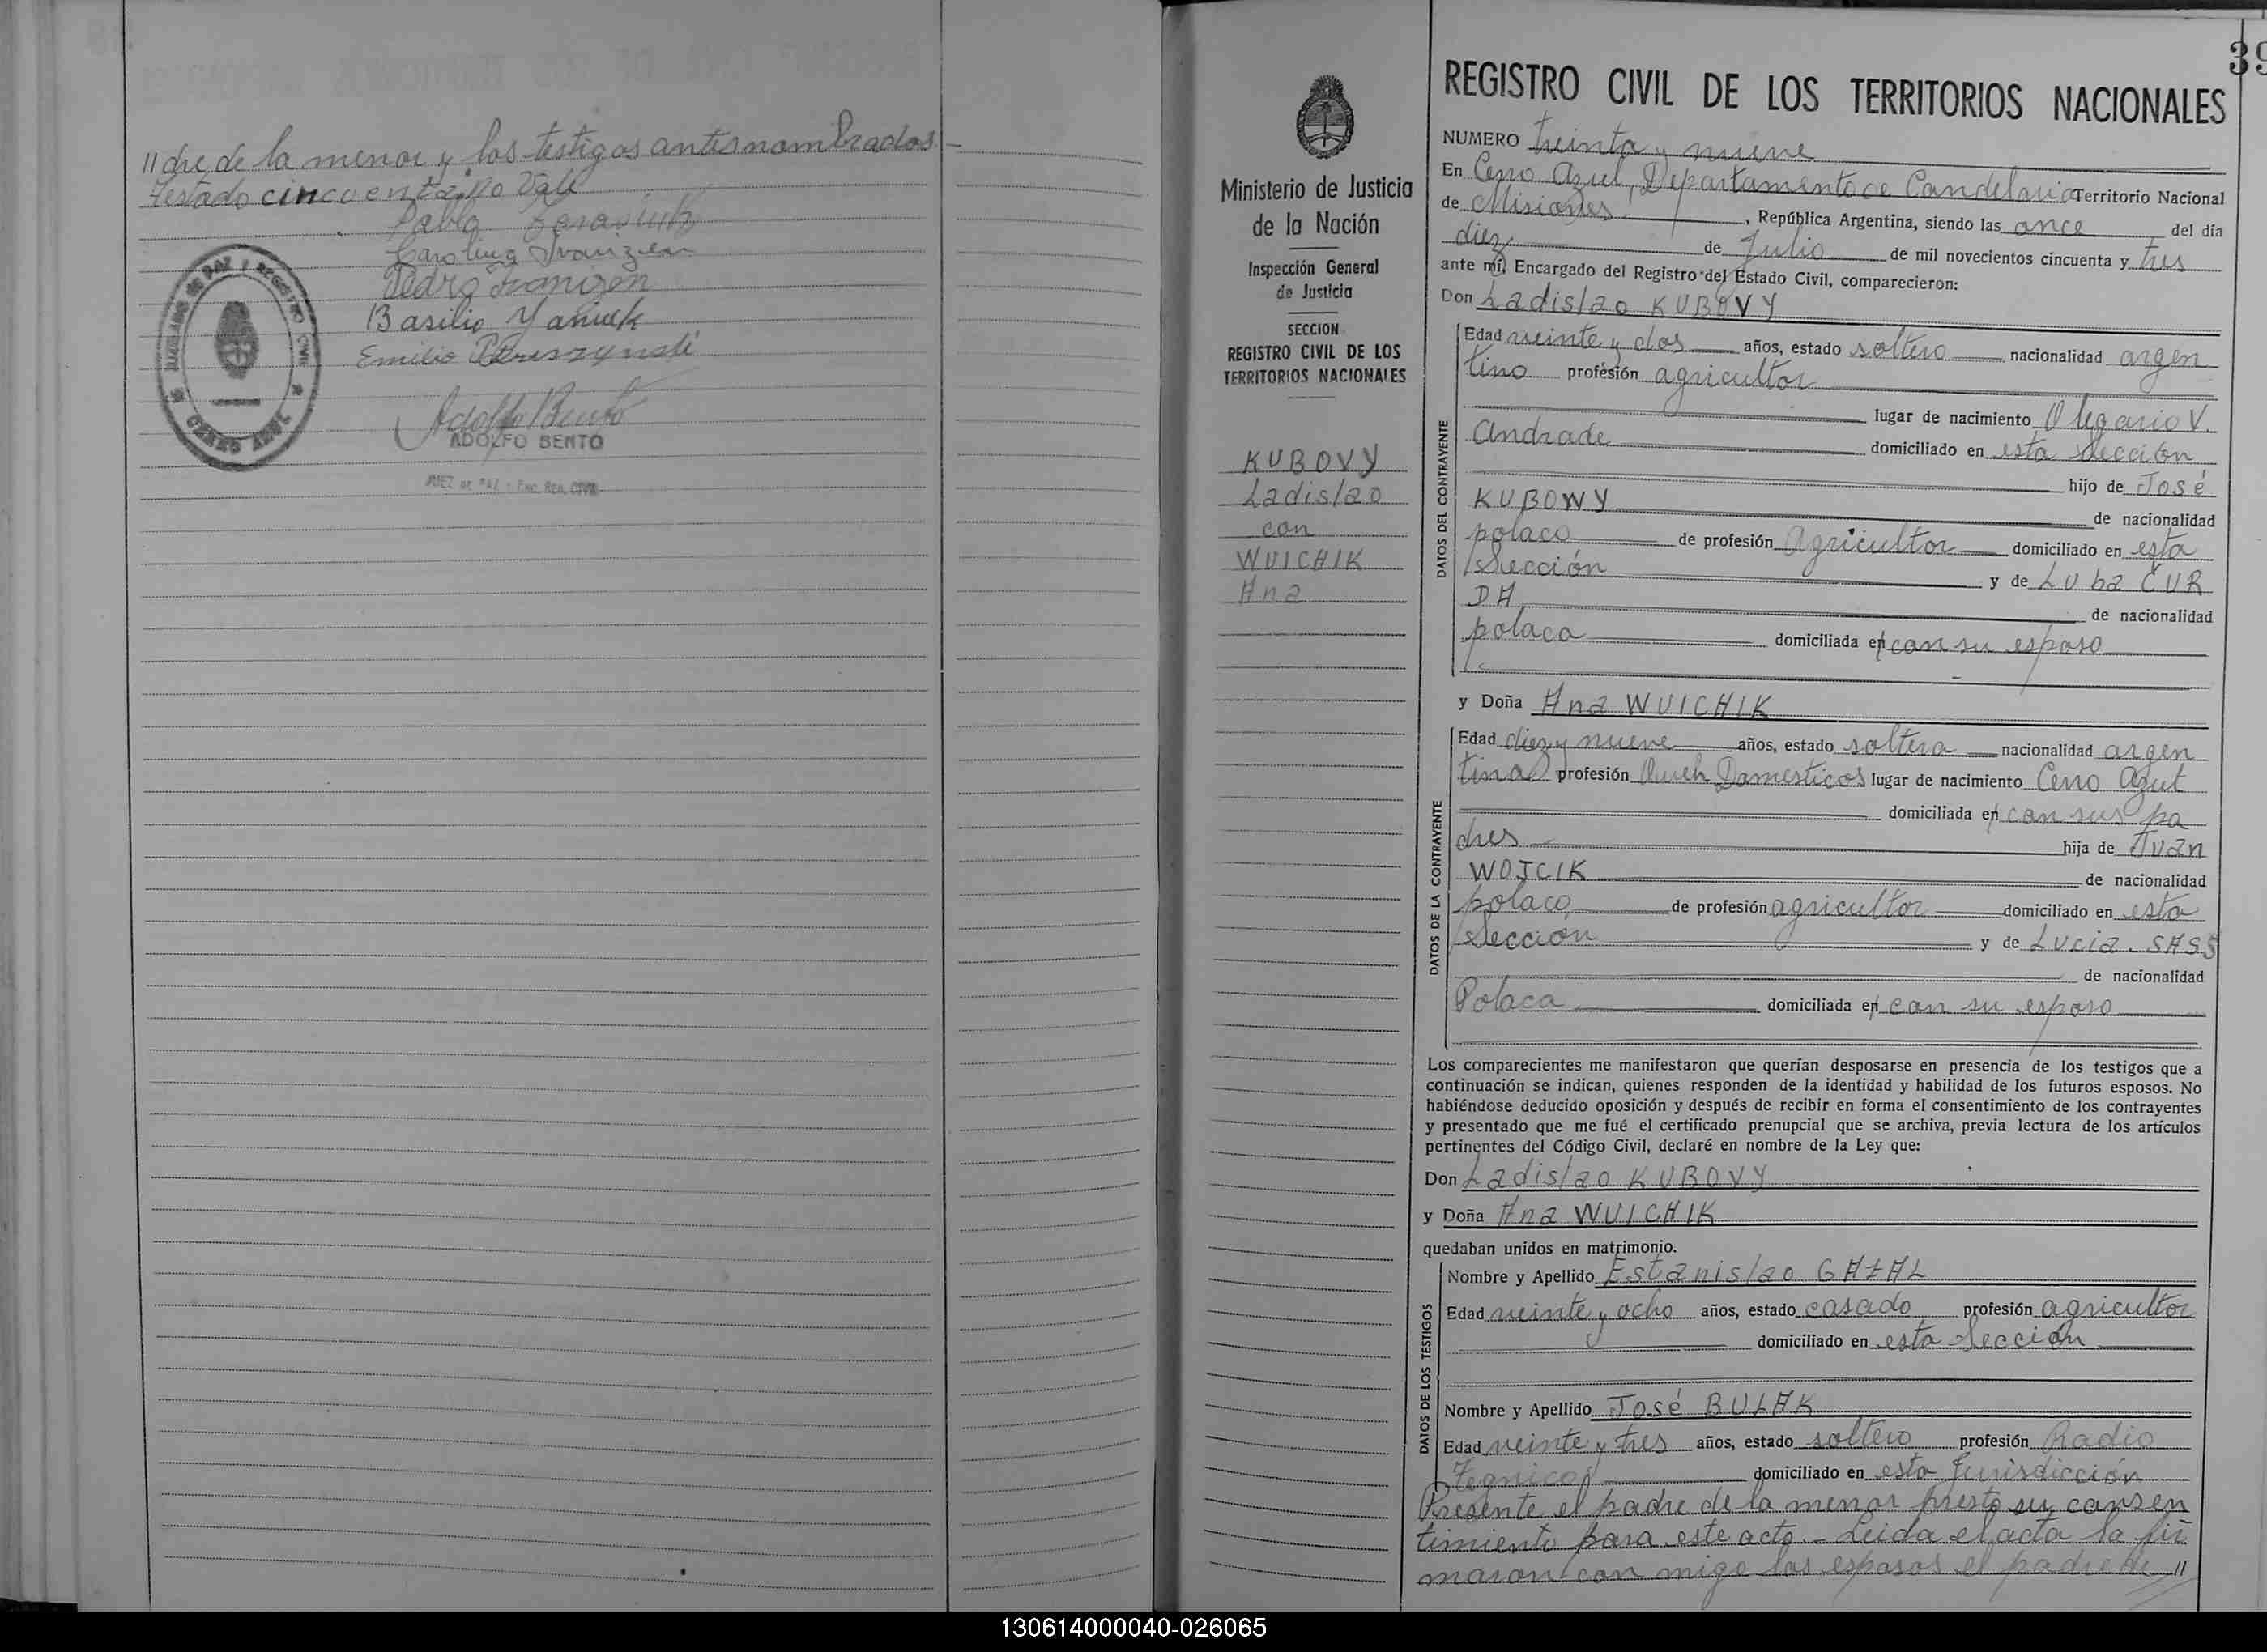 //dre de la menor y los testigos antesnombrados.—
Testado cincuenta: No Vale
Pablo
Carolina Franzen
Pedro Franizen
Basilio Yañuk
Emilio
Adolfo Bento
ADOLFO BENTO
JUEZ DE PAZ - ENC. REG. CIVIL
JUZGADO DE PAZ Y REGISTRO CIVIL
CERRO AZUL
Ministerio de Justicia
de la Nación
Inspección General
de Justicia
SECCION
REGISTRO CIVIL DE LOS
TERRITORIOS NACIONALES
KUBOVY
Ladislao
con
WUICHIK
Ana
39
REGISTRO CIVIL DE LOS TERRITORIOS NACIONALES
NUMERO treinta y nueve
En Cerro Azul, Departamento de Candelaria Territorio Nacional
de Misiones, República Argentina, siendo las once del día
diez de Julio de mil novecientos cincuenta y tres
ante mí, Encargado del Registro del Estado Civil, comparecieron:
Don Ladislao KUBOVY
DATOS DEL CONTRAYENTE
Edad veinte y dos años, estado soltero nacionalidad argen
tino profesión agricultor
lugar de nacimiento Olegario V.
Andrade domiciliado en esta Sección
hijo de José
KUBOWY de nacionalidad
polaco de profesión Agricultor domiciliado en esta
Sección y de Luba ČUR
DA de nacionalidad
polaca domiciliada en con su esposo
y Doña Ana WUICHIK
DATOS DE LA CONTRAYENTE
Edad diez y nueve años, estado soltera nacionalidad argen
tina profesión Queh. Domesticos lugar de nacimiento Cerro Azul
domiciliada en con sus pa
dres hija de Iván
WOJCIK de nacionalidad
polaco de profesión agricultor domiciliado en esta
Sección y de Lucia SASS
de nacionalidad
Polaca domiciliada en con su esposo
Los comparecientes me manifestaron que querían desposarse en presencia de los testigos que a
continuación se indican, quienes responden de la identidad y habilidad de los futuros esposos. No
habiéndose deducido oposición y después de recibir en forma el consentimiento de los contrayentes
y presentado que me fué el certificado prenupcial que se archiva, previa lectura de los artículos
pertinentes del Código Civil, declaré en nombre de la Ley que:
Don Ladislao KUBOVY
y Doña Ana WUICHIK
quedaban unidos en matrimonio.
DATOS DE LOS TESTIGOS
Nombre y Apellido Estanislao GAŁAL
Edad veinte y ocho años, estado casado profesión agricultor
domiciliado en esta Sección
Nombre y Apellido José BULAK
Edad veinte y tres años, estado soltero profesión Radio
Tegnico domiciliado en esta Jurisdicción
Presente el padre de la menor presto su consen
timiento para este acto.- Leida el acta la fir
maron con migo los esposos el padre de //
130614000040-026065